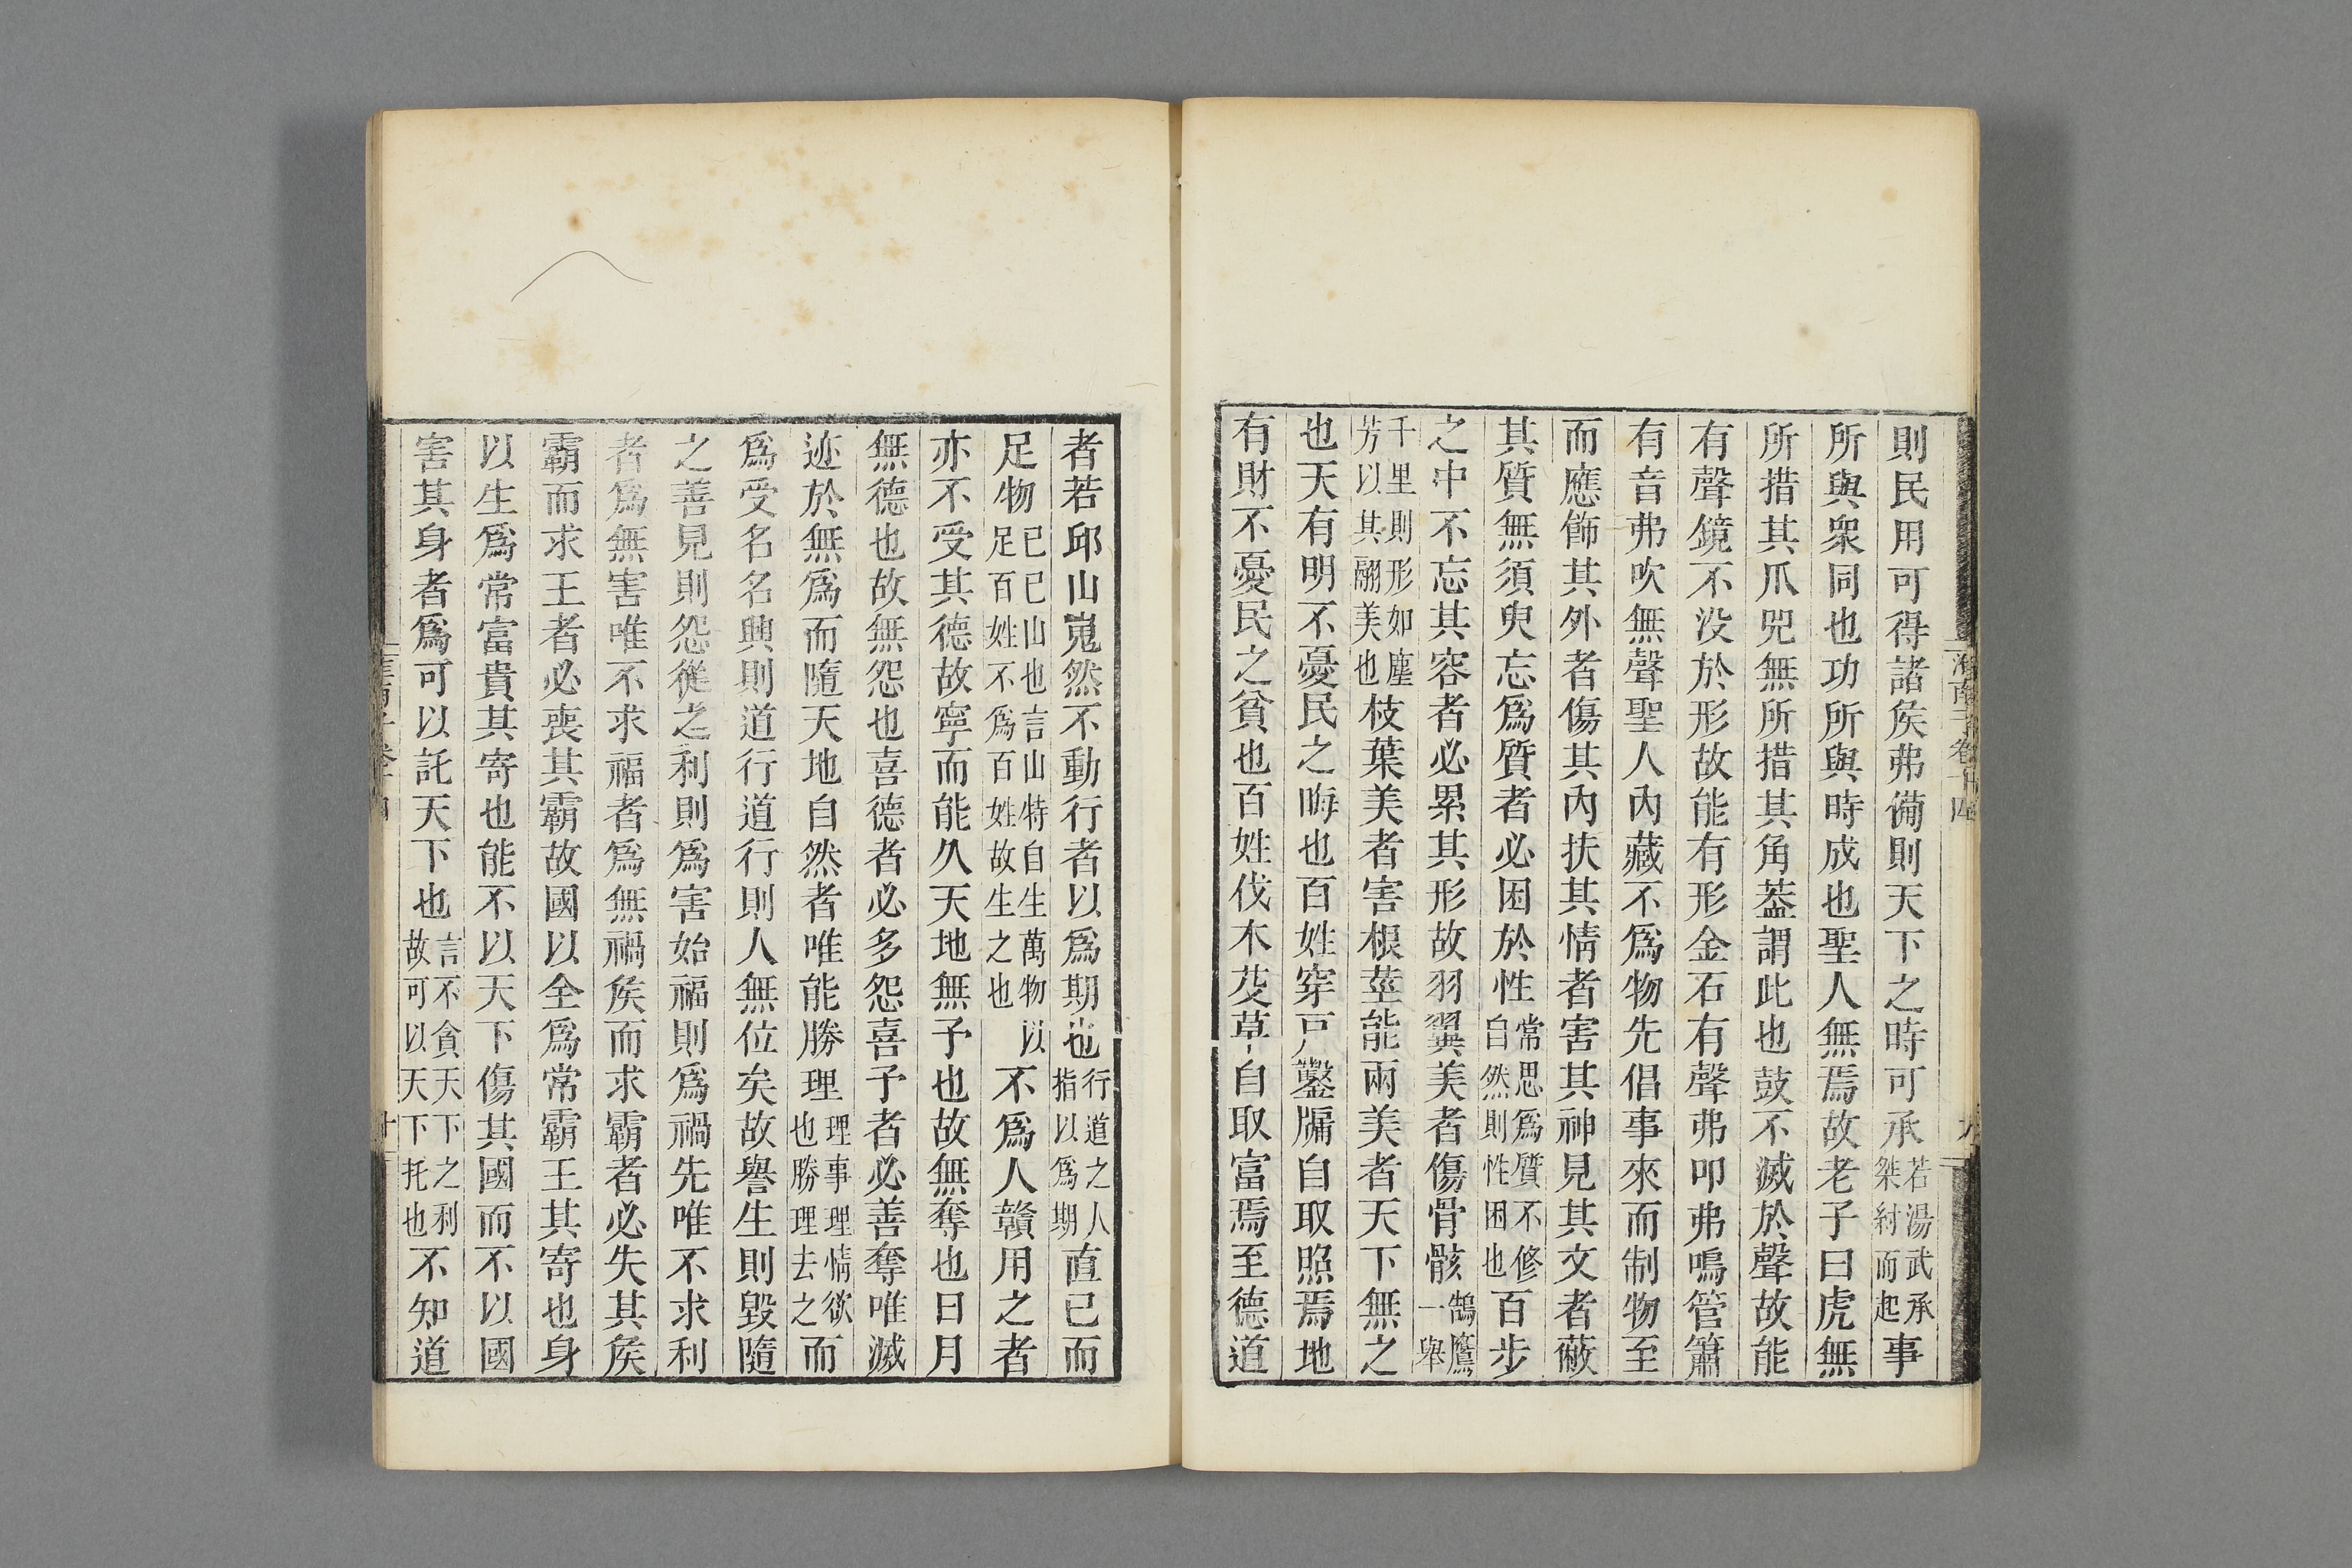 則民用可得諸矦弗備則天下之時可承若湯武承桀紂而起事
所與衆同也功所與時成也聖人無焉故老子曰虎無
所措其爪兕無所措其角葢謂此也鼓不滅於聲故能
有聲鏡不没於形故能有形金石有聲弗叩弗鳴管簫
有音弗吹無聲聖人內藏不爲物先倡事來而制物至
而應飾其外者傷其內扶其情者害其神見其文者蔽
其質無須臾忘爲質者必困於性常思爲質不修自然則性困也百步
之中不忘其容者必累其形故羽翼美者傷骨骸鵠鷹一舉
千里則形如塵芳以其翮美也枝葉美者害根莖能兩美者天下無之
也天有明不憂民之晦也百姓穿戸鑿牖自取照焉地
有財不憂民之貧也百姓伐木芟草自取富焉至德道
者若邱山嵬然不動行者以爲期也行道之人指以爲期直己而
足物已已山也言山特自生萬物以足百姓不爲百姓故生之也不爲人贛用之者
亦不受其德故寧而能久天地無予也故無奪也日月
無德也故無怨也喜德者必多怨喜予者必善奪唯滅
迹於無爲而隨天地自然者唯能勝理理事理情欲也勝理去之而
爲受名名興則道行道行則人無位矣故譽生則毀隨
之善見則怨從之利則爲害始福則爲禍先唯不求利
者爲無害唯不求福者爲無禍矦而求霸者必失其矦
霸而求王者必喪其霸故國以全爲常霸王其寄也身
以生爲常富貴其寄也能不以天下傷其國而不以國
害其身者爲可以託天下也言不貪天下之利故可以天下托也不知道
淮南子卷十四
九